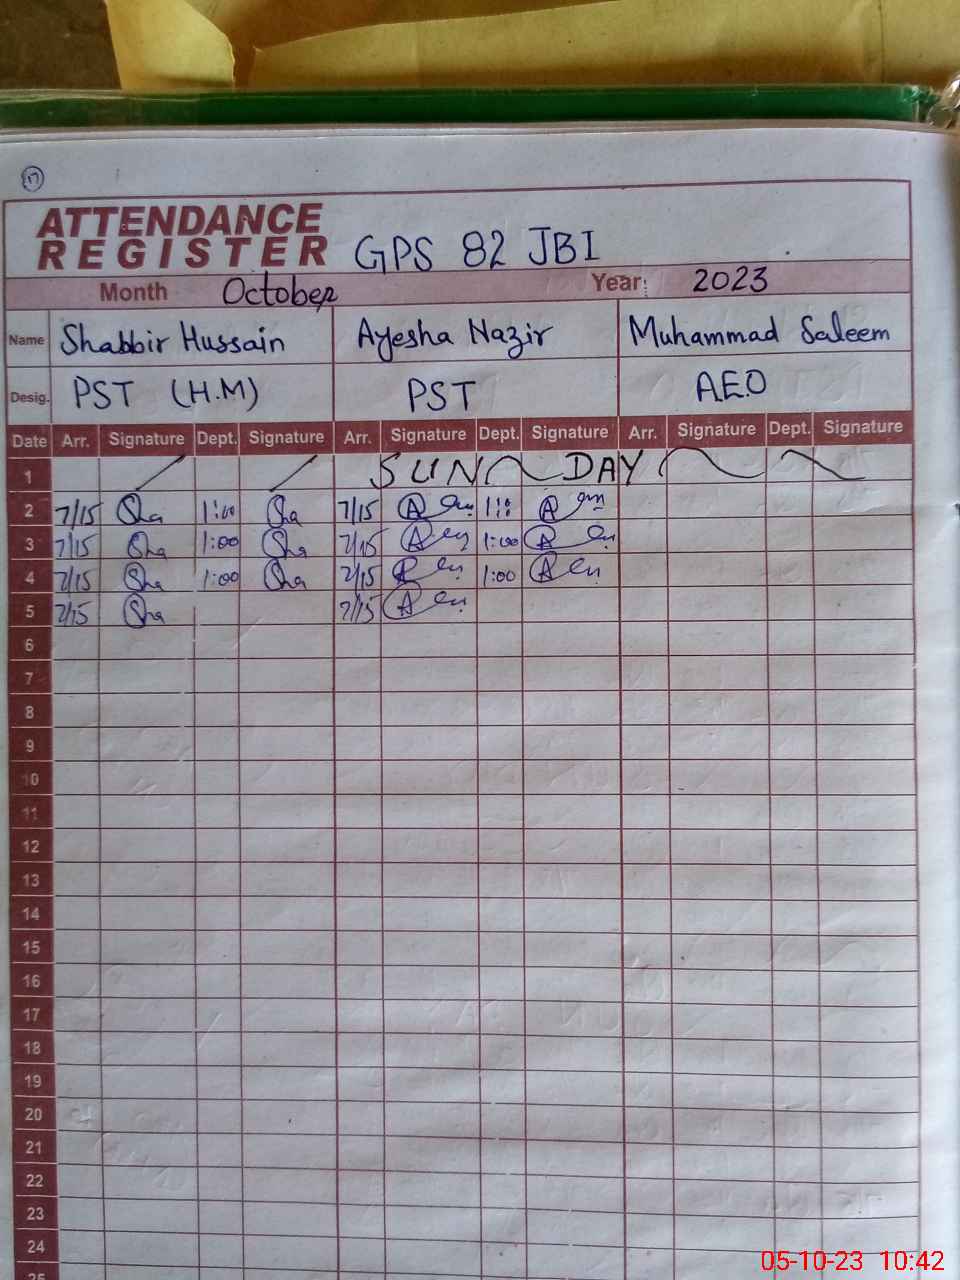 17
ATTENDANCE
REGISTER GPS 82 JBI
Month October Year: 2023
Name Shabbir Hussain Ayesha Nazir Muhammad Saleem
Desig. PST (H.M) PST A.E.O
Date Arr. Signature Dept. Signature Arr. Signature Dept. Signature Arr. Signature Dept. Signature
1 SUNDAY
2 7/15 Sha 1:00 Sha 7/15
3 7/15 Sha 1:00 Sha 7/15 1:00
4 7/15 Sha 1:00 Sha 7/15 1:00
5 7/15 Sha 7/15
6
7
8
9
10
11
12
13
14
15
16
17
18
19
20
21
22
23
24
25
05-10-23 10:42